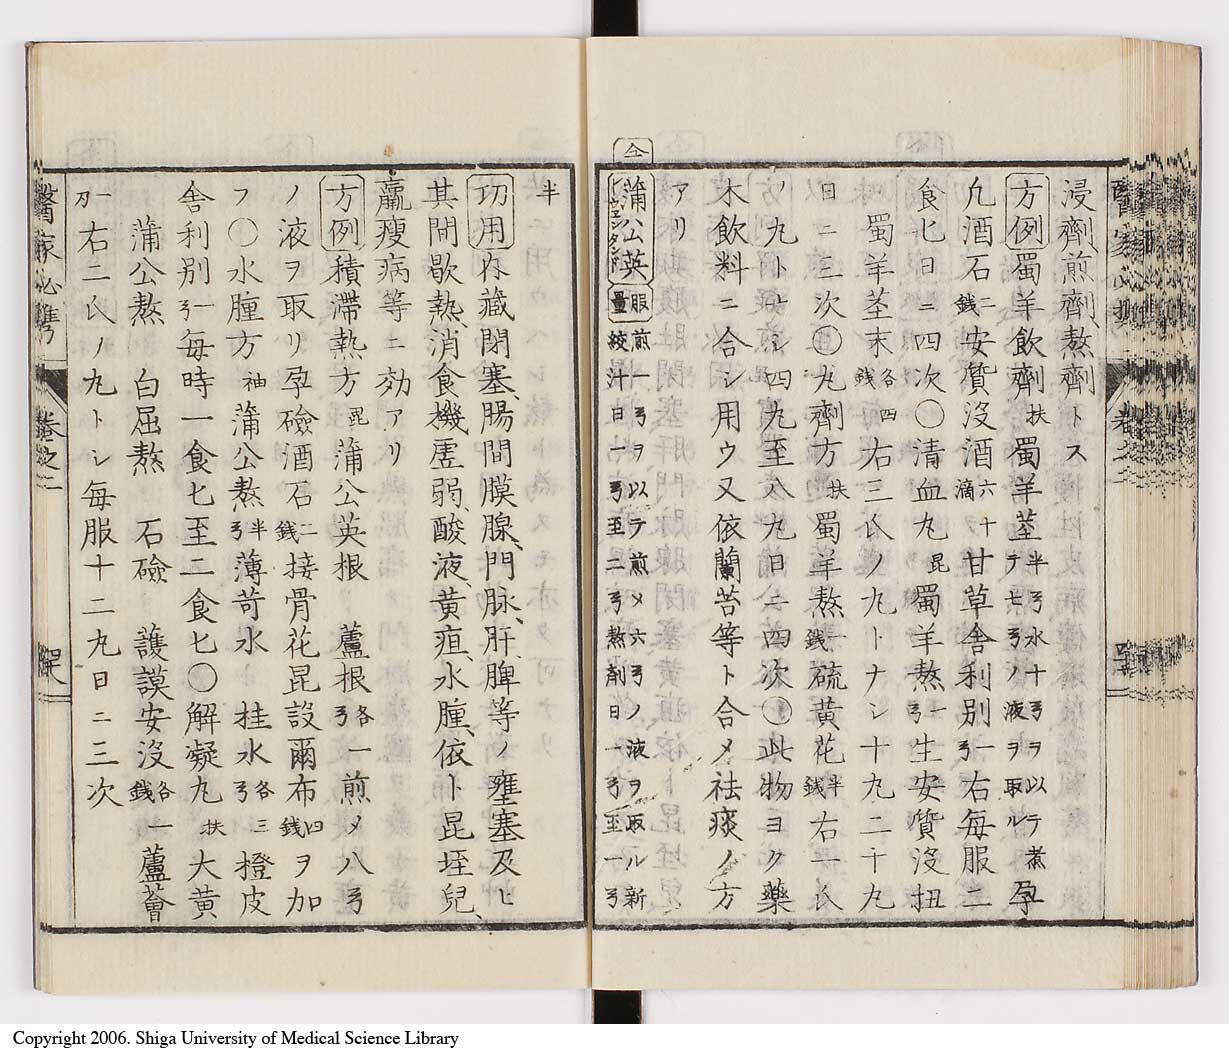 浸劑、煎劑、熬劑トス
方例 蜀羊飲劑 扶 蜀羊莖 半弓水十弓ヲ以テ煮テ七弓ノ液ヲ取ル 孕
凢酒石 二銭 安質没酒 六十滴 甘草舎利別 一弓 右毎服二
食匕日ニ四次〇清血丸 昆 蜀羊熬 一弓 生安質没扭
蜀羊莖末 各四銭 右三氏ノ丸トナシ十丸二十丸
日ニ三次〇丸劑方 扶 蜀羊熬 一銭 硫黄花 半銭 右一氏
ノ丸トナシ四丸至八丸日ニ四次〇此物ヨク藥
木飲料ニ合シ用ウ又依蘭苔等ト合メ祛痰ノ方
アリ
仝
蒲公英 服量 煎一弓ヲ以テ煎メ六弓ノ液ヲ取ル新絞汁日一弓至二弓熬剤日一弓至一弓
半
功用 在藏閉塞、腸間膜腺、門脉、肝、脾等ノ壅塞及ヒ
其間歇熱、消食機虚弱、酸液、黄疸、水腫、依卜昆垤兒、
羸瘦病等ニ効アリ
方例 積滞熱方 昆 蒲公英根 蘆根 各一弓 煎メ八弓
ノ液ヲ取リ孕礆酒石 二銭 接骨花昆設爾布 四銭 ヲ加
フ〇水腫方 袖 蒲公熬 半弓 薄苛水 桂水 各三弓 橙皮
舎利別 一弓 毎時一食匕至二食匕〇解凝丸 扶 大黄
蒲公熬 白屈熬 石礆 護謨安没 各一銭 蘆薈
一刀 右二氏ノ丸トシ毎服十二丸日ニ三次
醫家必携 巻之二
Copyright 2006. Shiga University of Medical Science Library